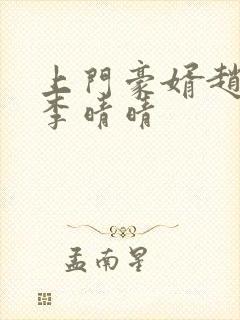 上門豪婿趙
李晴晴
孟南星